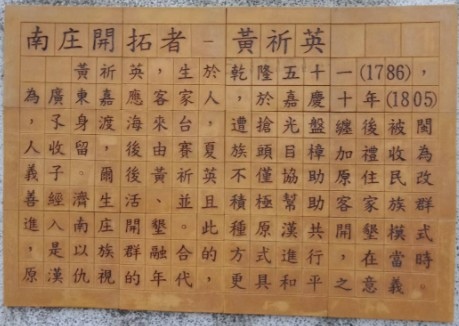 南庄開拓者－黃祈英
黃祈英，生於乾隆五十一(1786)，
為廣東嘉應客家人，於嘉慶十年(1805)
孑身渡海來台，遭搶光盤纏後被閩
人收留。後由賽夏族頭目樟加禮收為
義子，爾後黃祈英不僅協助原住民改
善經濟生活、並且積極幫助客家族群
進入南庄開墾。此種原漢共開墾模式
，是以族群融合的方式進行，在當時
原漢仇視的年代，更具和平之意義。